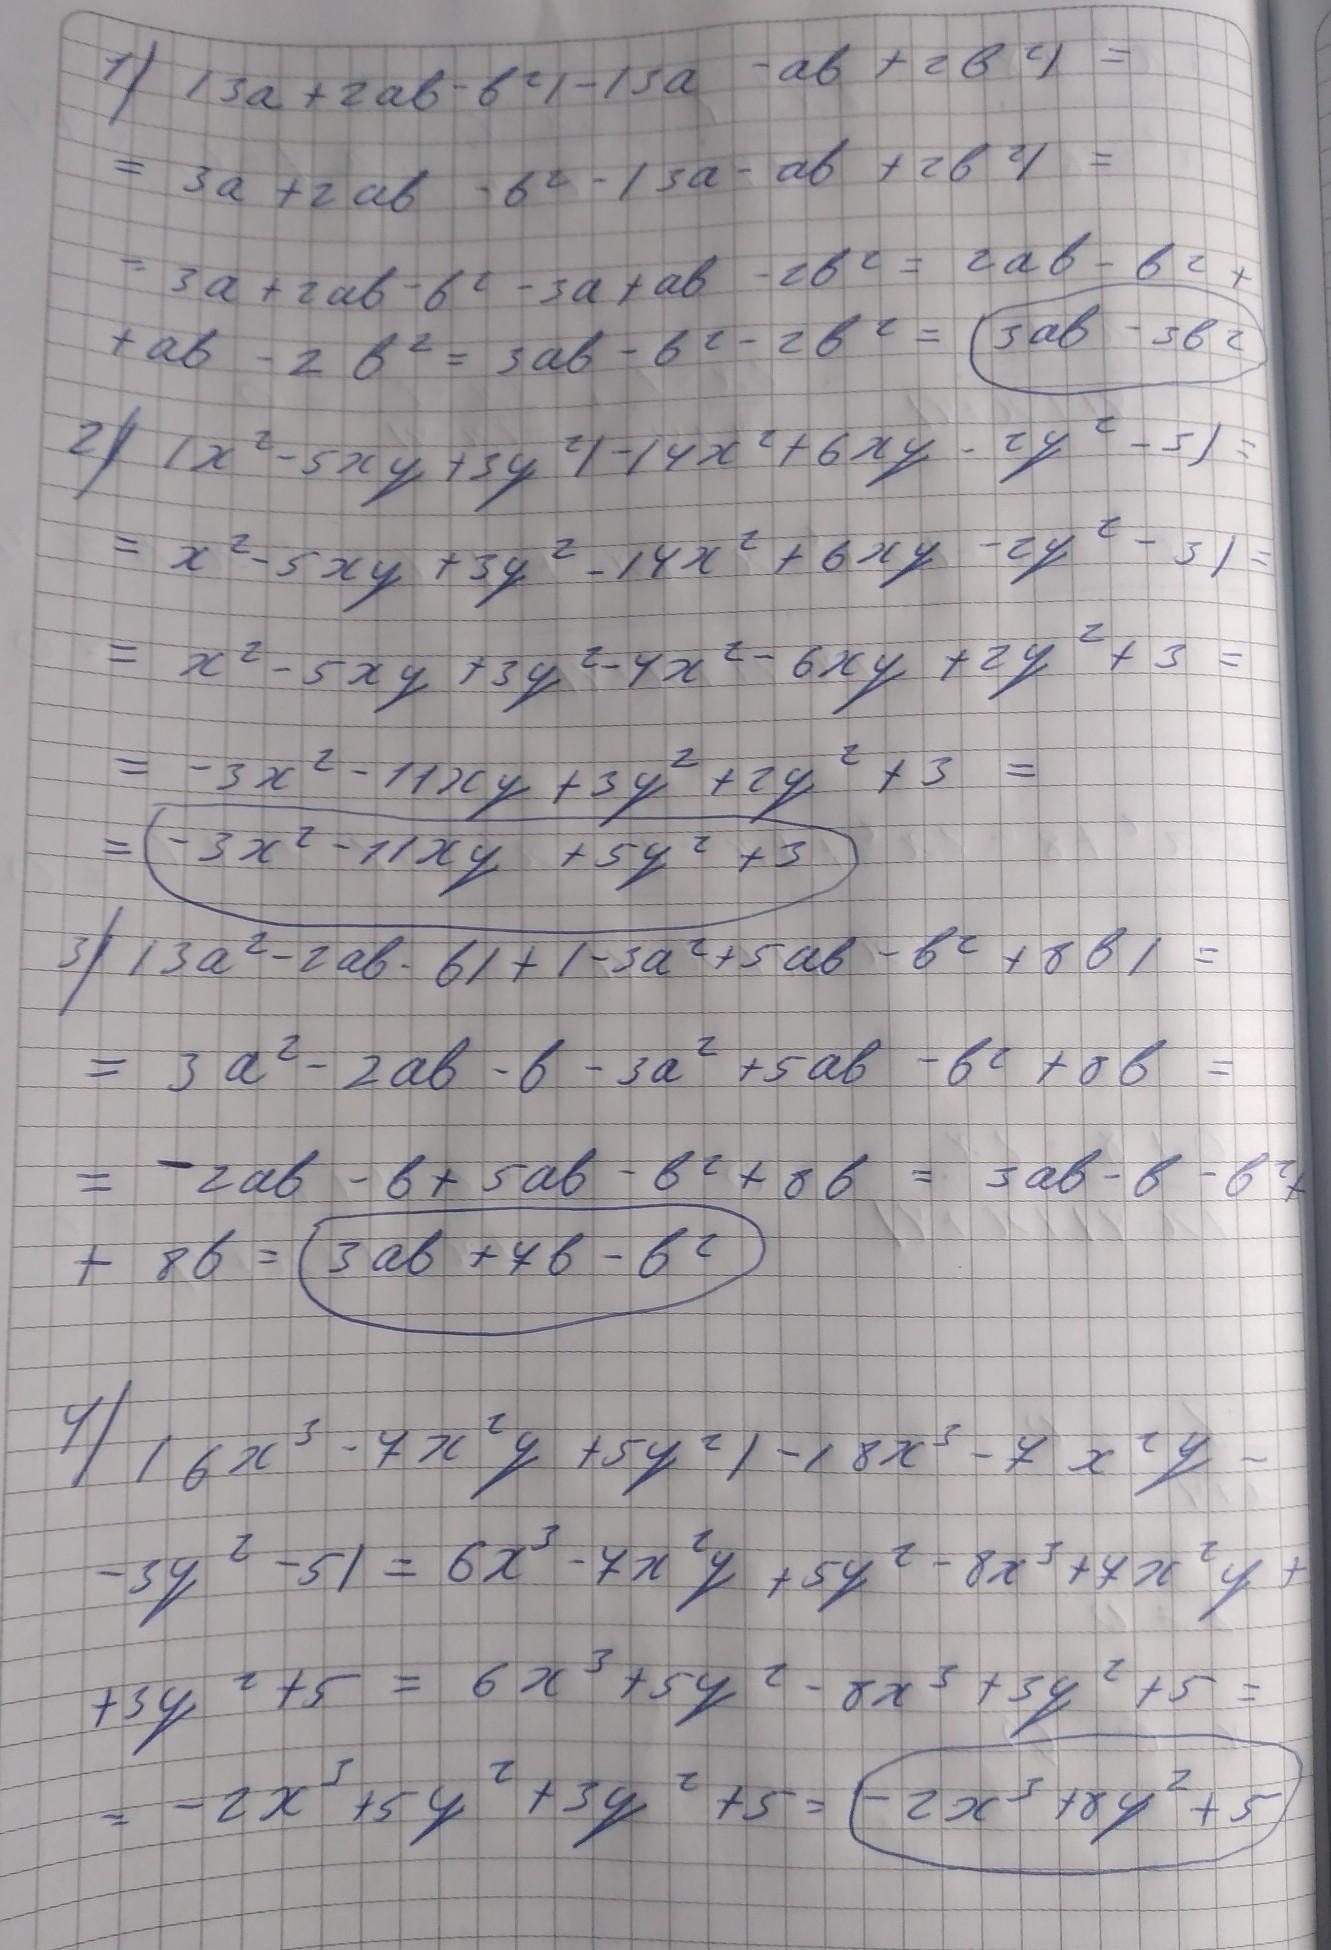 1) (3a + 2ab - b²) - (3a - ab + 2b²) =
= 3a + 2ab - b² - (3a - ab + 2b²) =
= 3a + 2ab - b² - 3a + ab - 2b² = 2ab - b² +
+ ab - 2b² = 3ab - b² - 2b² = 3ab - 3b²
2) (x² - 5xy + 3y²) - (4x² + 6xy - 2y² - 3) =
= x² - 5xy + 3y² - (4x² + 6xy - 2y² - 3) =
= x² - 5xy + 3y² - 4x² - 6xy + 2y² + 3 =
= -3x² - 11xy + 3y² + 2y² + 3 =
= -3x² - 11xy + 5y² + 3
3) (3a² - 2ab - b) + (-3a² + 5ab - b² + 8b) =
= 3a² - 2ab - b - 3a² + 5ab - b² + 8b =
= -2ab - b + 5ab - b² + 8b = 3ab - b - b² +
+ 8b = 3ab + 7b - b²
4) (6x³ - 7x²y + 5y²) - (8x³ - 7x²y -
- 3y² - 5) = 6x³ - 7x²y + 5y² - 8x³ + 7x²y +
+ 3y² + 5 = 6x³ + 5y² - 8x³ + 3y² + 5 =
= -2x³ + 5y² + 3y² + 5 = -2x³ + 8y² + 5